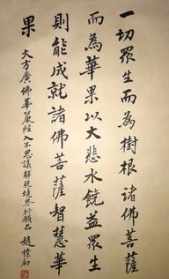 一切眾生而為樹根諸佛菩薩
而為華果以大悲水饒益眾生
則能成就諸佛菩薩智慧華
果
大方廣佛華嚴經入不思議解脫境界行願品 趙樸初